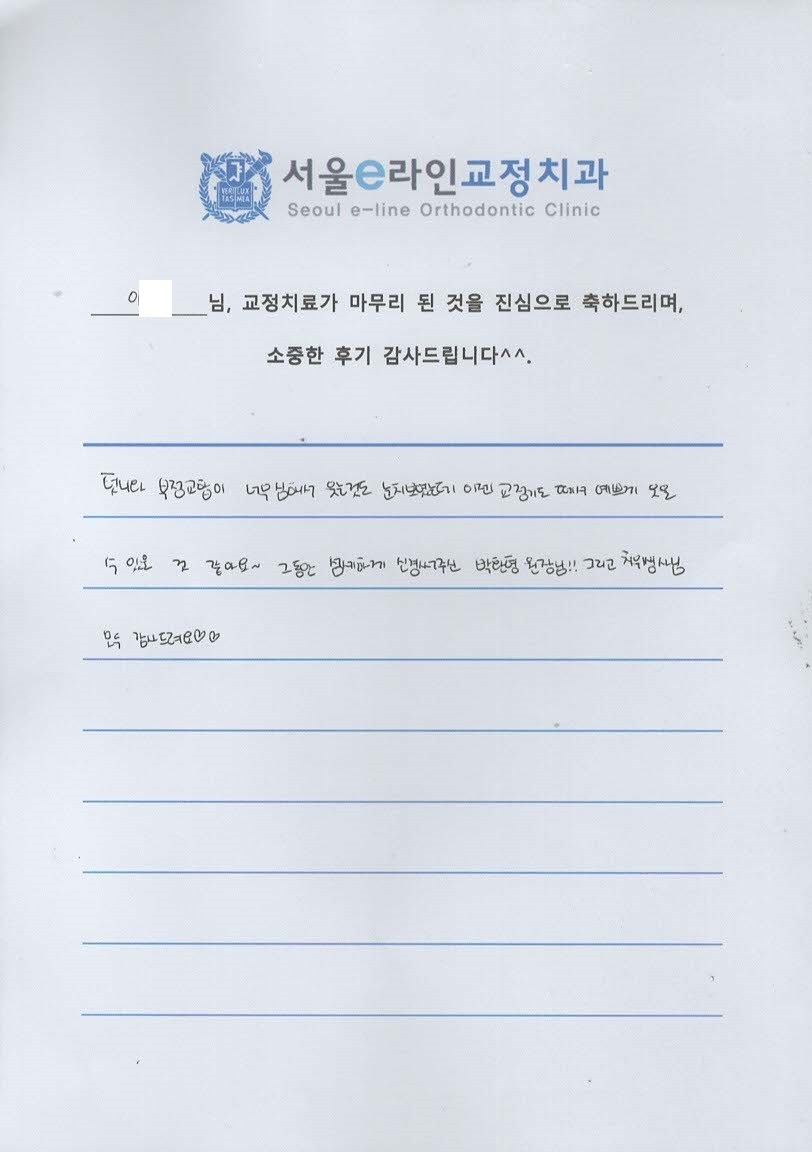 서울e라인교정치과
Seoul e-line Orthodontic Clinic
VERI LUX
TAS MEA
이 님, 교정치료가 마무리 된 것을 진심으로 축하드리며,
소중한 후기 감사드립니다^^.
덧니랑 부정교합이 너무 심해서 웃는것도 눈치보였는데 이젠 교정기도 떼서 예쁘게 웃을
수 있을 것 같아요~ 그동안 섬세하게 신경써주신 박한평 원장님!! 그리고 치위생사님
모두 감사드려요♡♡